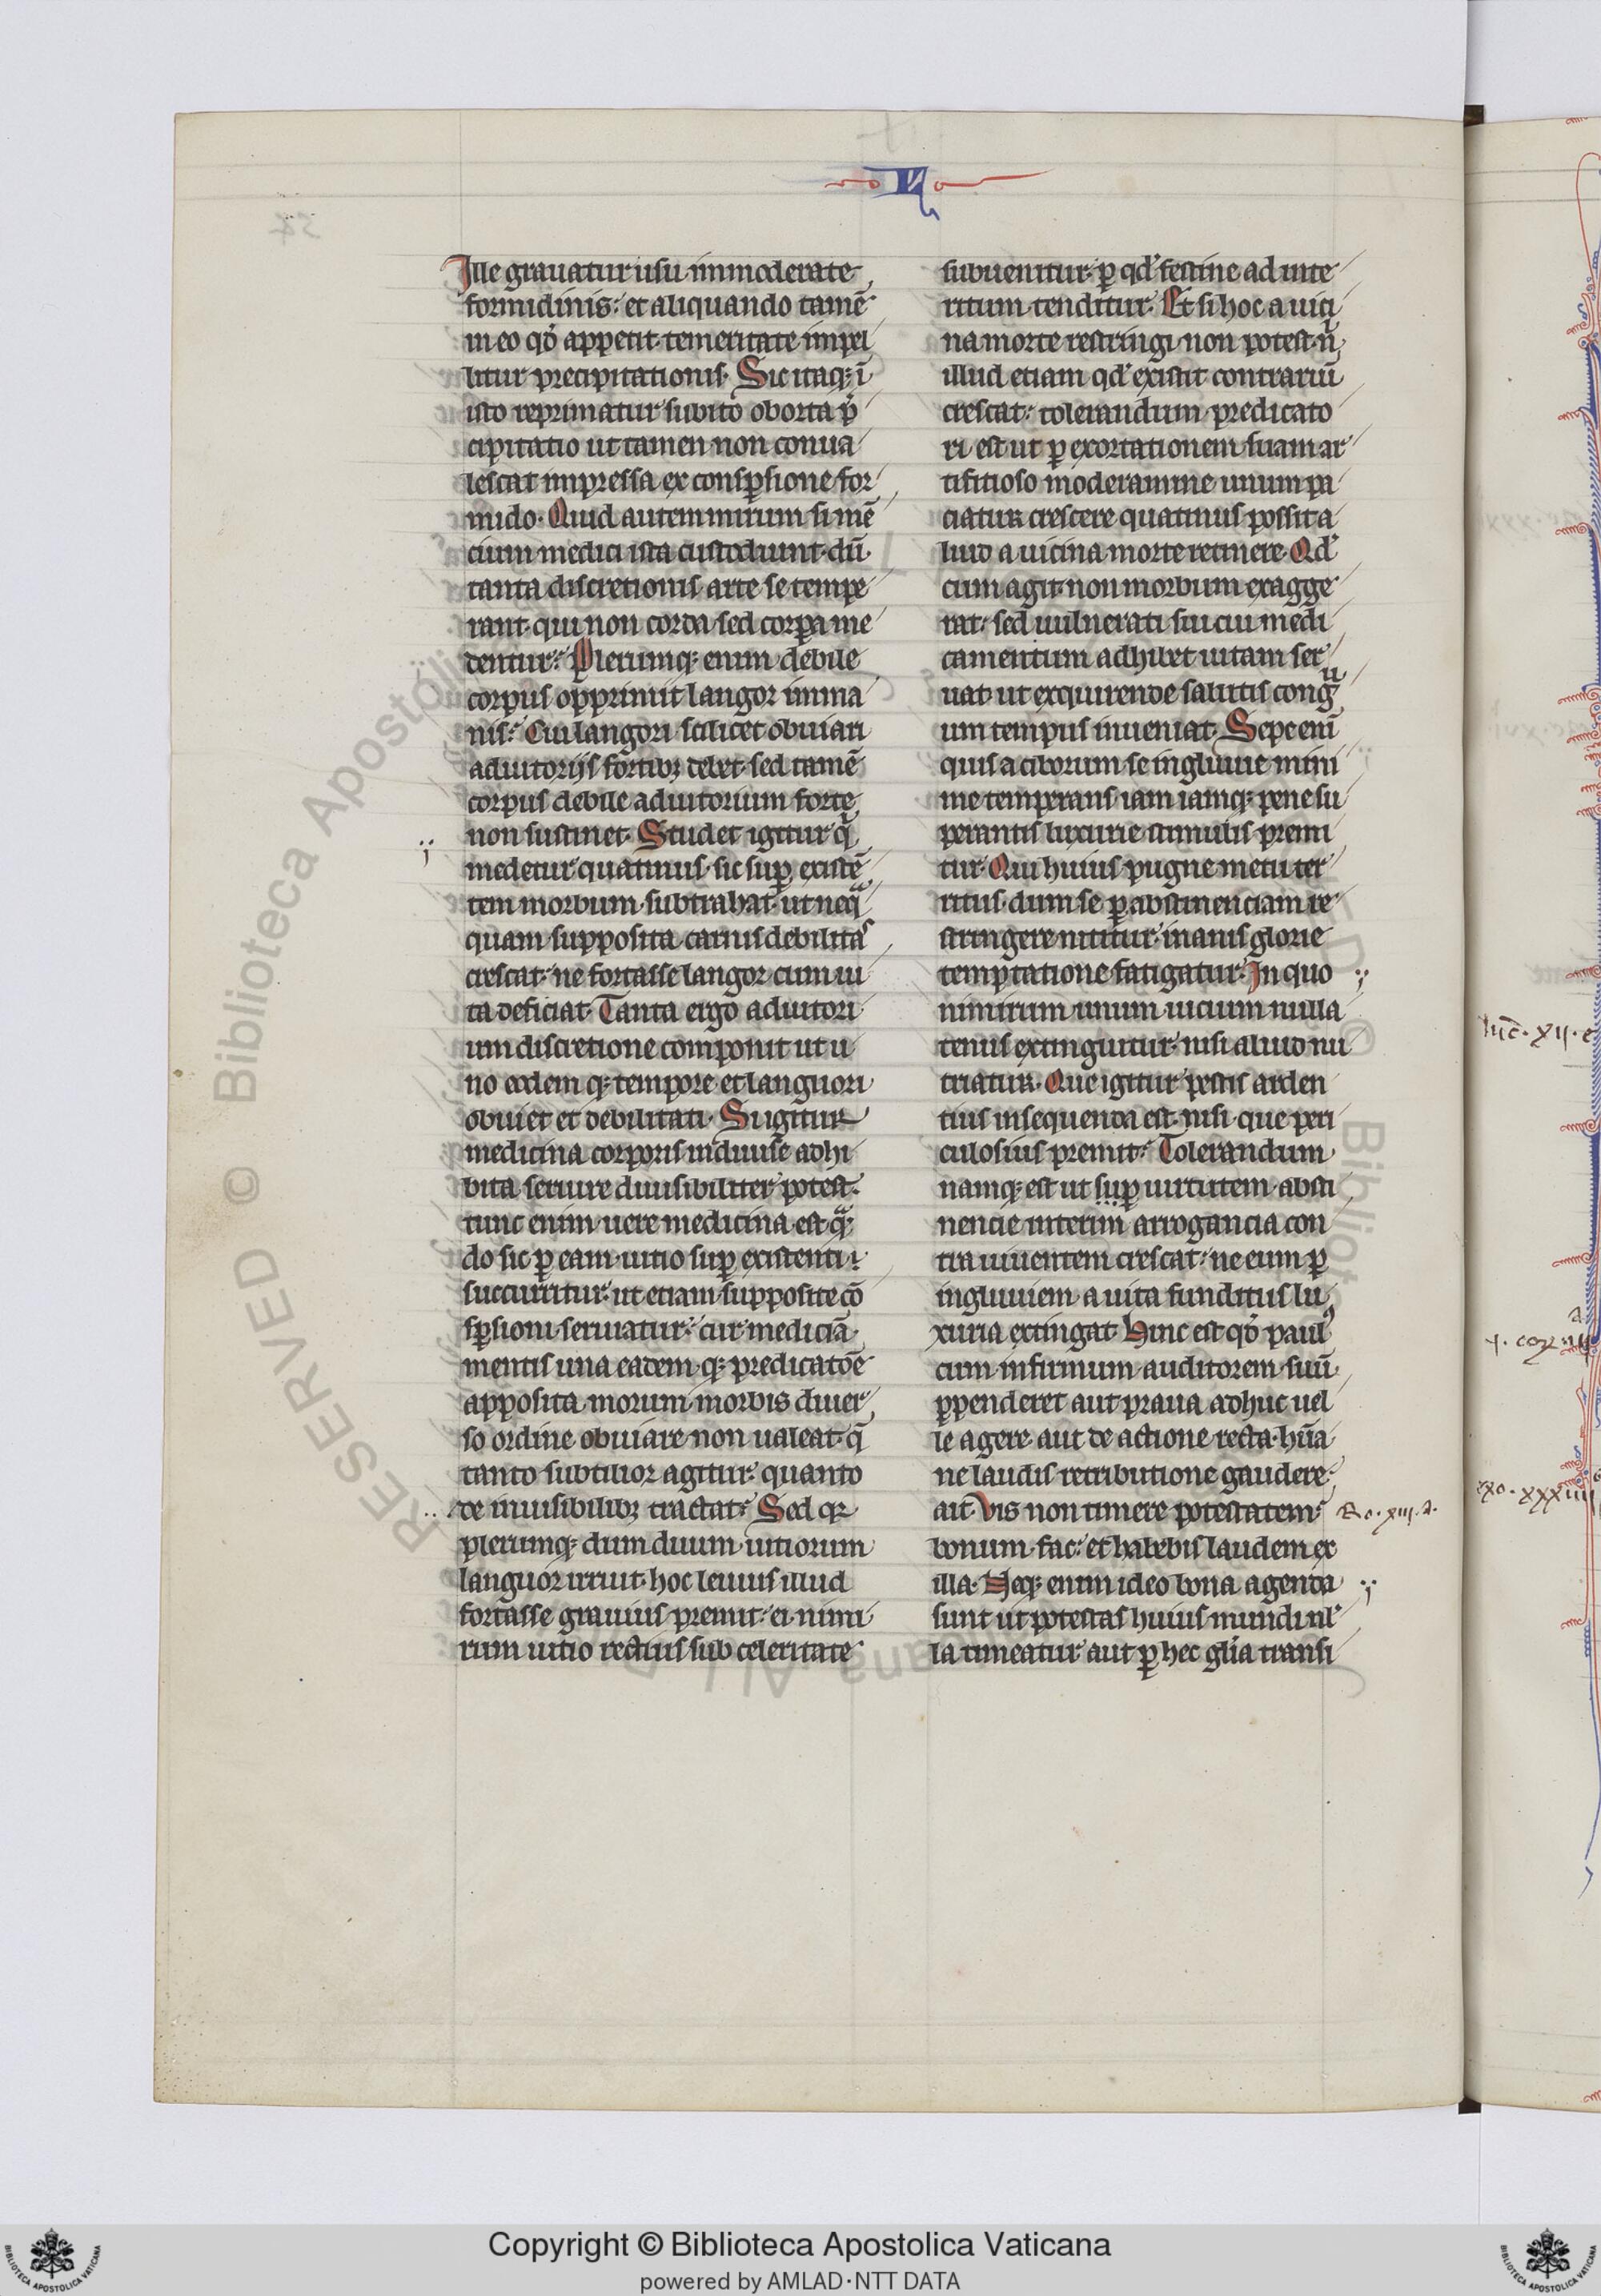 Ille grauatur usu immoderate
formidinis: et aliquando tamē
in eo qđ appetit temeritate impel
litur precipitationis. Sic itaq; ī
isto reprimatur subito oborta p̄
cipitatio ut tamen non conua
lescat impressa ex conspersione for
mido. Quid autem mirum si mē
cium medici ista custodiunt. dū
tanta discretionis arte se tempe
rant. qui non corda sed corꝑa me
dentur: Plerumq; enim debile
corpus opprimit langor imma
nis: Cui langori scilicet obuiari
adiutorijs fortibꝫ debet. sed tamē
corpus debile adiutorium forte
non sustinet. Studet igitur q̇
medetur quatinus sic suꝑ existē
tem morbum subtrahat. ut neq̄
quam supposita carius debilitas
crescat. ne fortasse langor cum ui
ta deficiat. Tanta ergo adiutori
um discretione componit ut u
no eodem q; tempore et languori
obuiet et debilitati. Si igitur
medicina corporis indiuise adhi
bita seruire diuisibiliter potest.
tunc enim uere medicina est qᵃ̄
do sic ꝑ eam uitio suꝑ existenti
succurritur. ut etiam supposite cō
sꝑsioni seruiatur: cur mediciā
mentis una eadem q; predicatōe
apposita morum morbis diuer
so ordine obuiare non ualeat. q̄
tanto subtilior agitur: quanto
de inuisibilibꝫ tractat: Sed qꝛ
plerumq; dum duum uitiorum
languor irruit. hoc leuius illud
fortasse grauius premit. ei nimi
rum uitio rectius sub celeritate
subuenitur. ꝑ qđ festine ad inte
ritum tenditur. Et si hoc a uici
na morte restringi non potest. nͥ
illud etiam qđ existit contrariū
crescat: tolerandum predicato
ri est ut ꝑ exortationem suam ar
tifitioso moderamine unum pa
ciatur crescere quatinus possit a
liud a uicina morte retinere. Qđ
cum agit. non morbum exagge
rat: sed uulnerati sui cui medi
camentum adhibet uitam ser
uat. ut exquirende salutis congͧ
um tempus inueniat. Sepe enī
quis a ciborum se ingluuie mini
me temperans iam iamq; pene su
perantis luxurie stimulis premi
tur. Qui huius pugne metu ter
ritus. dum se ꝑ abstinenciam re
stringere nititur. inanis glorie
temptatione fatigatur. In quo
nimirum unum uicium nulla
tenus extinguitur. nisi aliud nu
triatur. Que igitur pestis arden
tius insequenda est. nisi que peri
culosius premit: Tolerandum
namq; est ut suꝑ uirtutem absti
nencie interim arrogancia con
tra uiuentem crescat. ne eum ꝑ
ingluuiem a uita funditus lu
xuria extingat. Hinc est qđ paul᾽
cum infirmum auditorem suū
ꝑpenderet aut praua adhuc uel
le agere. aut de actione recta hūa
ne laudis retributione gaudere.
ait. Vis non timere potestatem: Ro. xiii. a.
bonum fac: et habebis laudem ex
illa. Neq; enim ideo bona agenda
sunt ut potestas huius mundi nl᾽
la timeatur aut ꝑ hec glīa transi
Copyright © Biblioteca Apostolica Vaticana
powered by AMLAD·NTT DATA